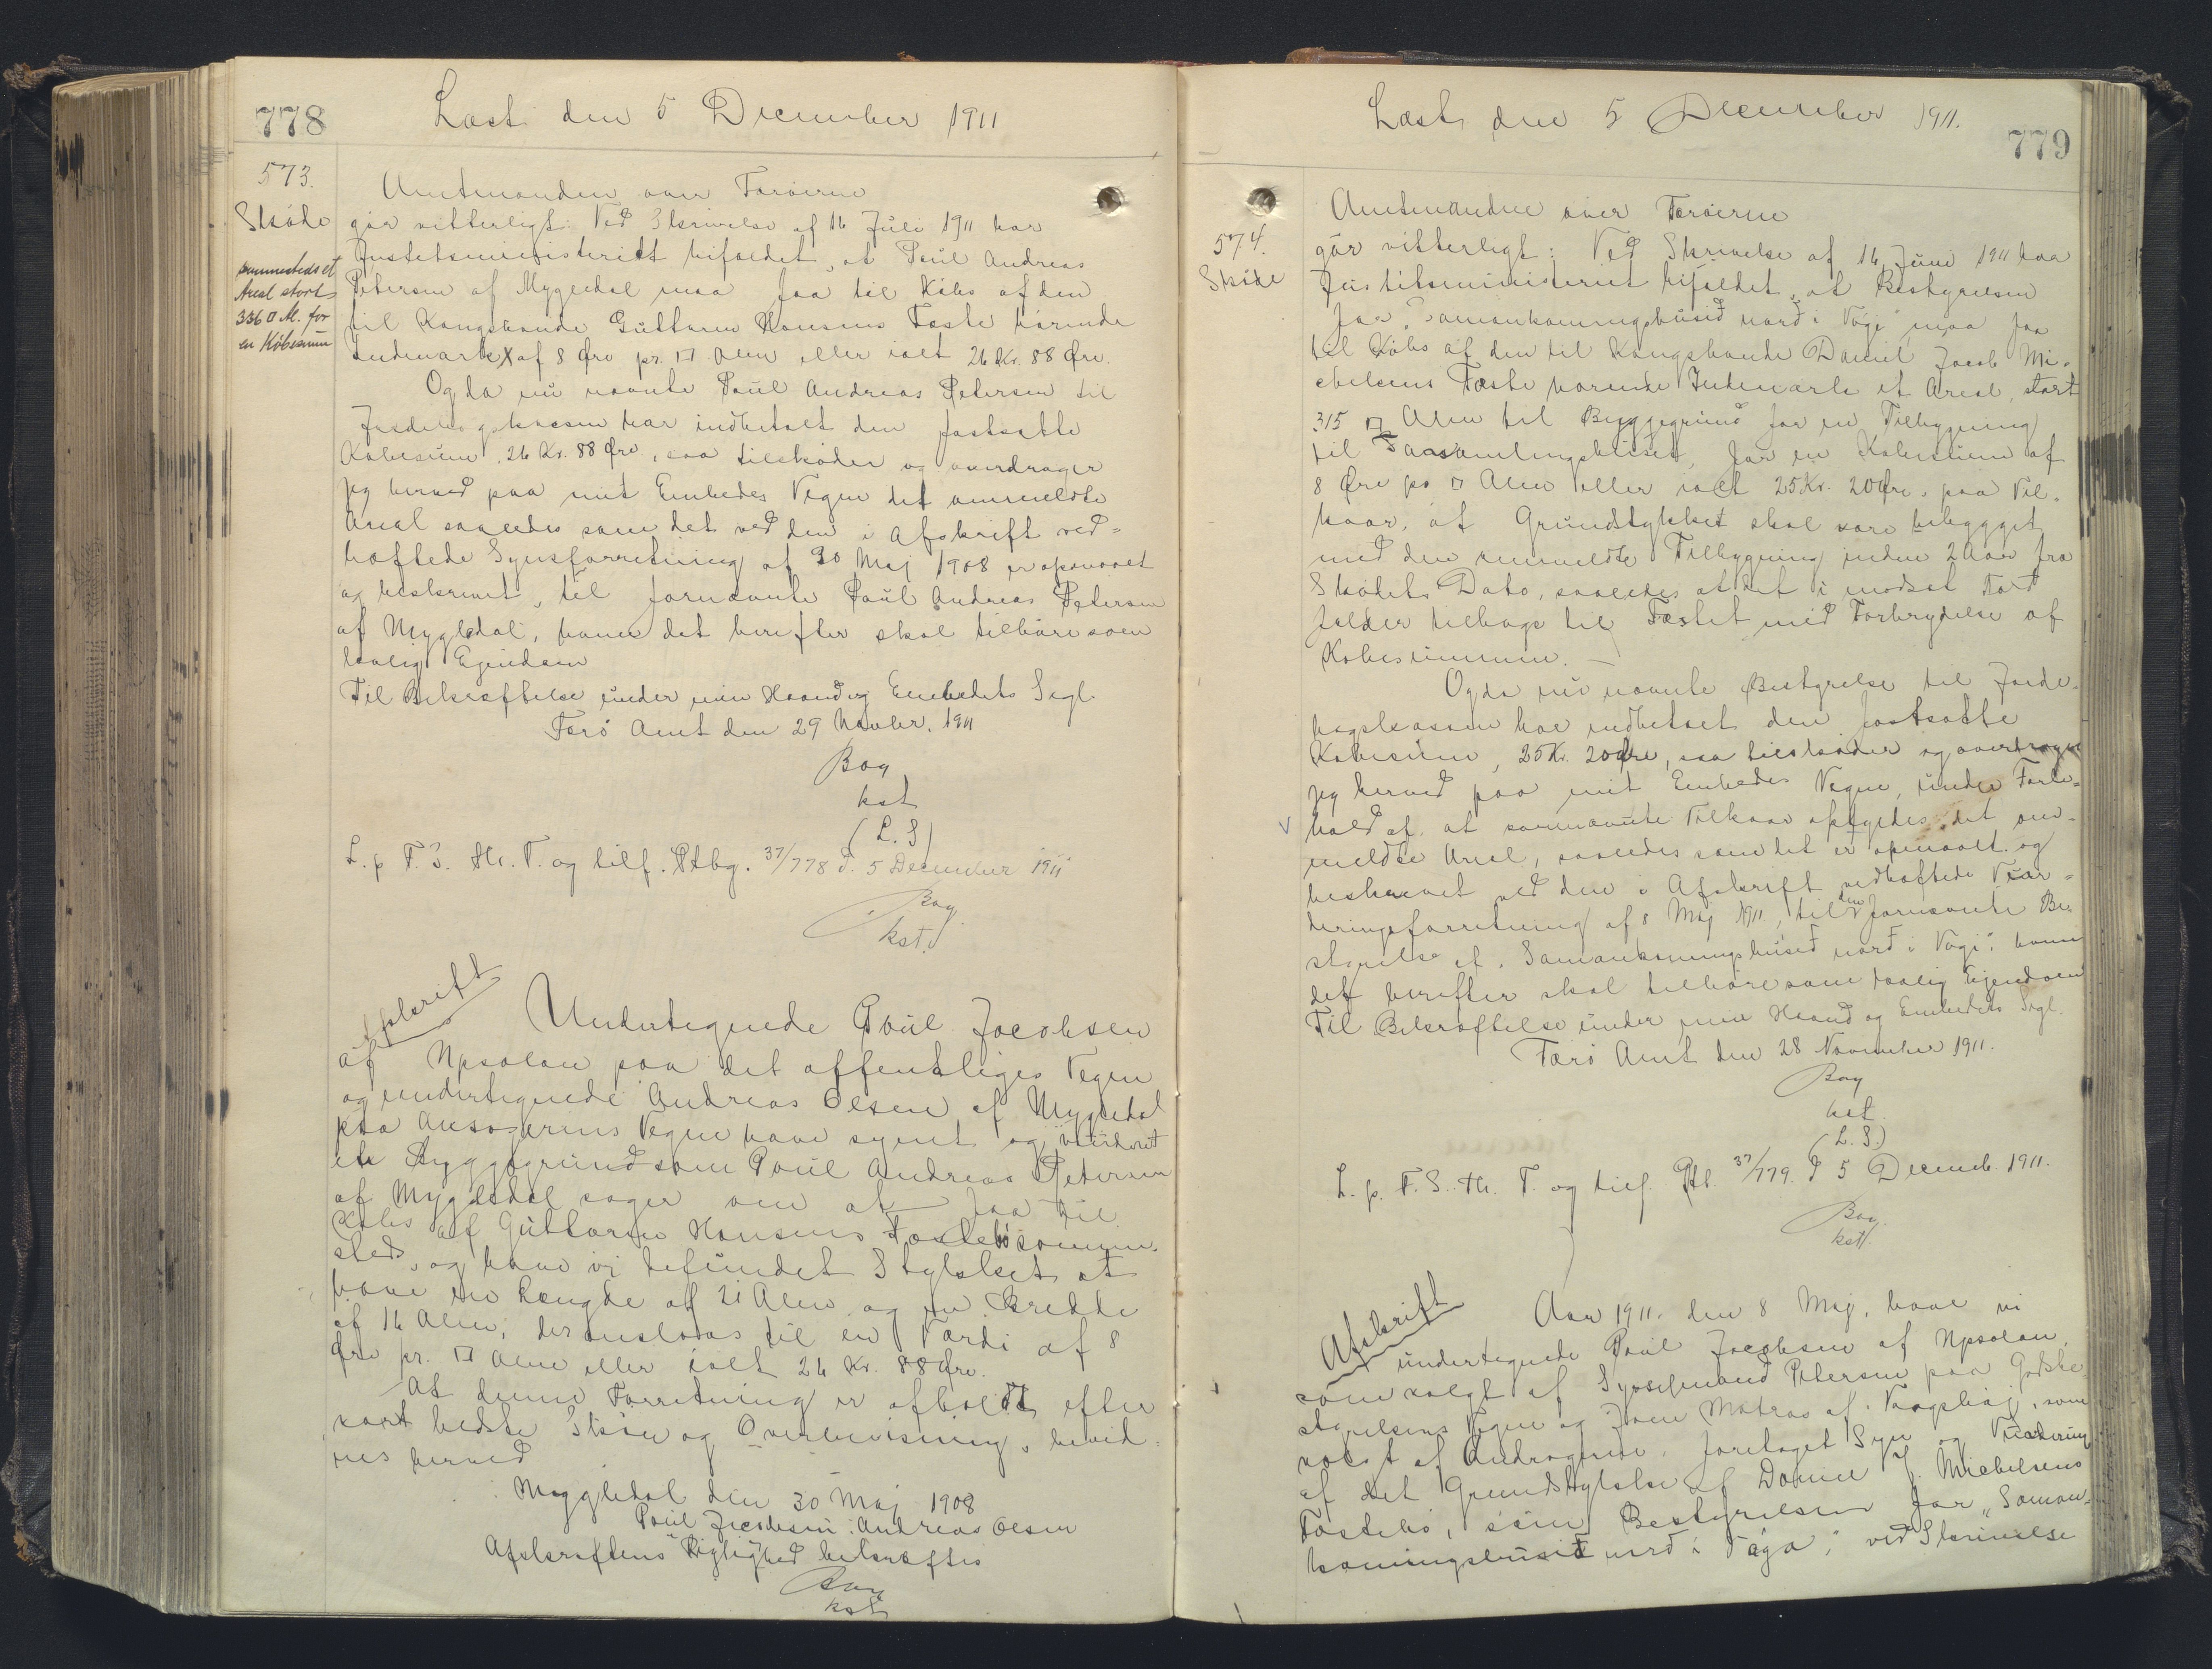 778
Læst den 5 December 1911
573.
Skøde
sammesteds et
Areal stort
336 □ Al. for
en Købesum
Amtmanden over Færøerne
gør vitterligt: Ved Skrivelse af 16 Juli 1911 har
Justitsministeriet bifaldet, at Poul Andreas
Petersen af Mygledal maa faa til Købs af den
til Kongsbonde Guttorm Hansens Fæste hørende
Indmark X af 8 Øre pr. □ Alen eller ialt 26 Kr. 88 Øre.
Og da nu nævnte Poul Andreas Petersen til
Jordebogskassen har indbetalt den fastsatte
Købesum 26 Kr. 88 Øre, saa tilskøder og overdrager
jeg herved paa mit Embedes Vegne det ommeldte
Areal saaledes som det ved den i Afskrift ved-
hæftede Synsforretning af 30 Maj 1908 er opmaalt
og beskrevet, til fornævnte Poul Andreas Petersen
af Mygledal, hvem det herefter skal tilhøre som
lovlig Ejendom
Til Bekræftelse under min Haand og Embedets Segl.
Færø Amt den 29 Novbr. 1911
Bay
kst
(L.S)
L. p F. S. Th. T. og tilf. Ptbg. 37/778 d. 5 December 1911
Bay
kst.
Afskrift
Undertegnede Poul Jacobsen
af Npsalan paa det offentliges Vegne
og undertegnede Andreas Olsen af Mygledal
paa Ansøgerens Vegne have synet og vurderet
en Byggegrund som Poul Andreas Petersen
af Mygledal søger om at faa til
Købs af Guttorm Hansens Fæstebo samme-
steds, og have vi befundet Stykket at
have en Længde af 21 Alen og en Bredde
af 16 Alen, der ansloaas til en Værdi af 8
Øre pr. □ Alen eller ialt 26 Kr. 88 Øre.
At denne Forretning er afholdt efter
vort bedste Skøn og Overbevisning, bevid-
nes herved
Mygledal den 30 Maj 1908
Poul Jacobsen. Andreas Olsen
Afskriftens Rigtighed bekræftes
Bay
kst
Læst den 5 December 1911.
779
574.
Skøde
Amtmanden over Færøerne
gør vitterligt: Ved Skrivelse af 16 Juni 1911 har
Justitsministeriet bifaldet, at Bestyrelsen
for "Samankomingshusid nord i Vági" maa faa
til Købs af den til Kongsbonde Daniel Jacob Mi-
chelsens Fæste hørende Indmark et Areal, stort
315 □ Alen til Byggegrund for en Tilbygning
til Forsamlingshuset, for en Købesum af
8 Øre pr □ Alen eller ialt 25 Kr. 20 Øre, paa Vil-
kaar, at Grundstykket skal være bebygget
med den ommeldte Tilbygning inden 2 Aar fra
Skødets Dato, saaledes at det i modsat Fald
falder tilbage til Fæstet med Forbrydelse af
Købesummen.
Og da nu nævnte Bestyrelse til Jorde-
bogskassen har indbetalt den fastsatte
Købesum, 25 Kr. 20 Øre, saa tilskøder og overdrager
jeg herved paa mit Embedes Vegne, under Forbe-
hold af at fornævnte Vilkaar opfyldes det om-
meldte Areal, saaledes som det er opmaalt og
beskrevet ved den i Afskrift vedhæftede Vur-
deringsforretning af 8 Maj 1911, til den fornævnte Be-
styrelse af "Samankomingshusid nord i Vági" hvem
det herefter skal tilhøre som lovlig Ejendom
Til Bekræftelse under min Haand og Embedets Segl.
Færø Amt den 28 November 1911.
Bay
kst.
(L.S.)
L. p. F. S. Th. T. og tilf. Ptb. 37/779. d 5 Decemb. 1911.
Bay
kst.
Afskrift
Aar 1911. den 8 Maj, have vi
undertegnede Poul Jacobsen af Npsalan,
som valgt af Sysselmand Petersen paa Godsbe-
styrelsens Vegne og Joen Matras af Vaagsbøj, som
valgt af Andragerne foretaget Syn og Vurdering
af det Grundstykke af Daniel J. Michelsens
Fæstebo, som Bestyrelsen for "Saman-
komingshusid nord i Vága", ved Skrivelse